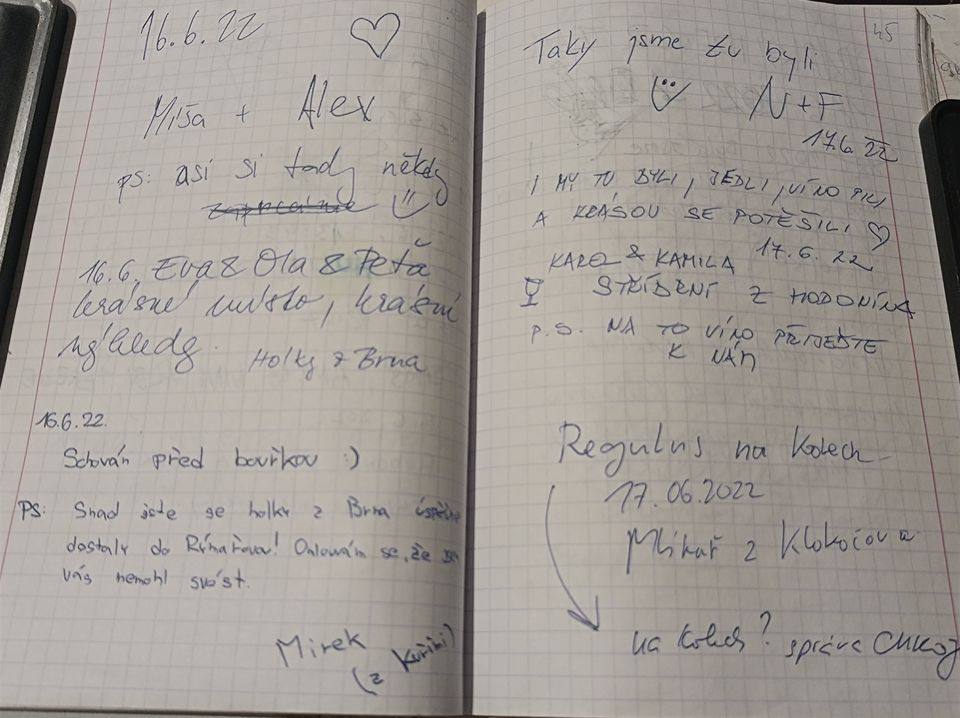 16.6.22 ♡
Míša + Alex
ps: asi si tady někdy
16.6. Eva & Ola & Peťa
krásné místo, krásné
výhledy.
Holky z Brna
16.6.22.
Schován před bouřkou :)
PS: Snad jste se holky z Brna úspěšně
dostaly do Rýmařova! Omlouvám se, že jsem
vás nemohl svést.
Mirek
(z Kuřimi)
45
Taky jsme tu byli
N+F
17.6.22
I MY TU BYLI, JEDLI, VÍNO PILI
A KRÁSOU SE POTĚŠILI ♡
KAREL & KAMILA 17.6.22
STŘÍBRNÍ Z HODONÍNA
P.S. NA TO VÍNO PŘIJEĎTE
K NÁM
Regulus na Kolech
17.06.2022
Mlikař z Klokočova
na kolech? správa CHKOJ